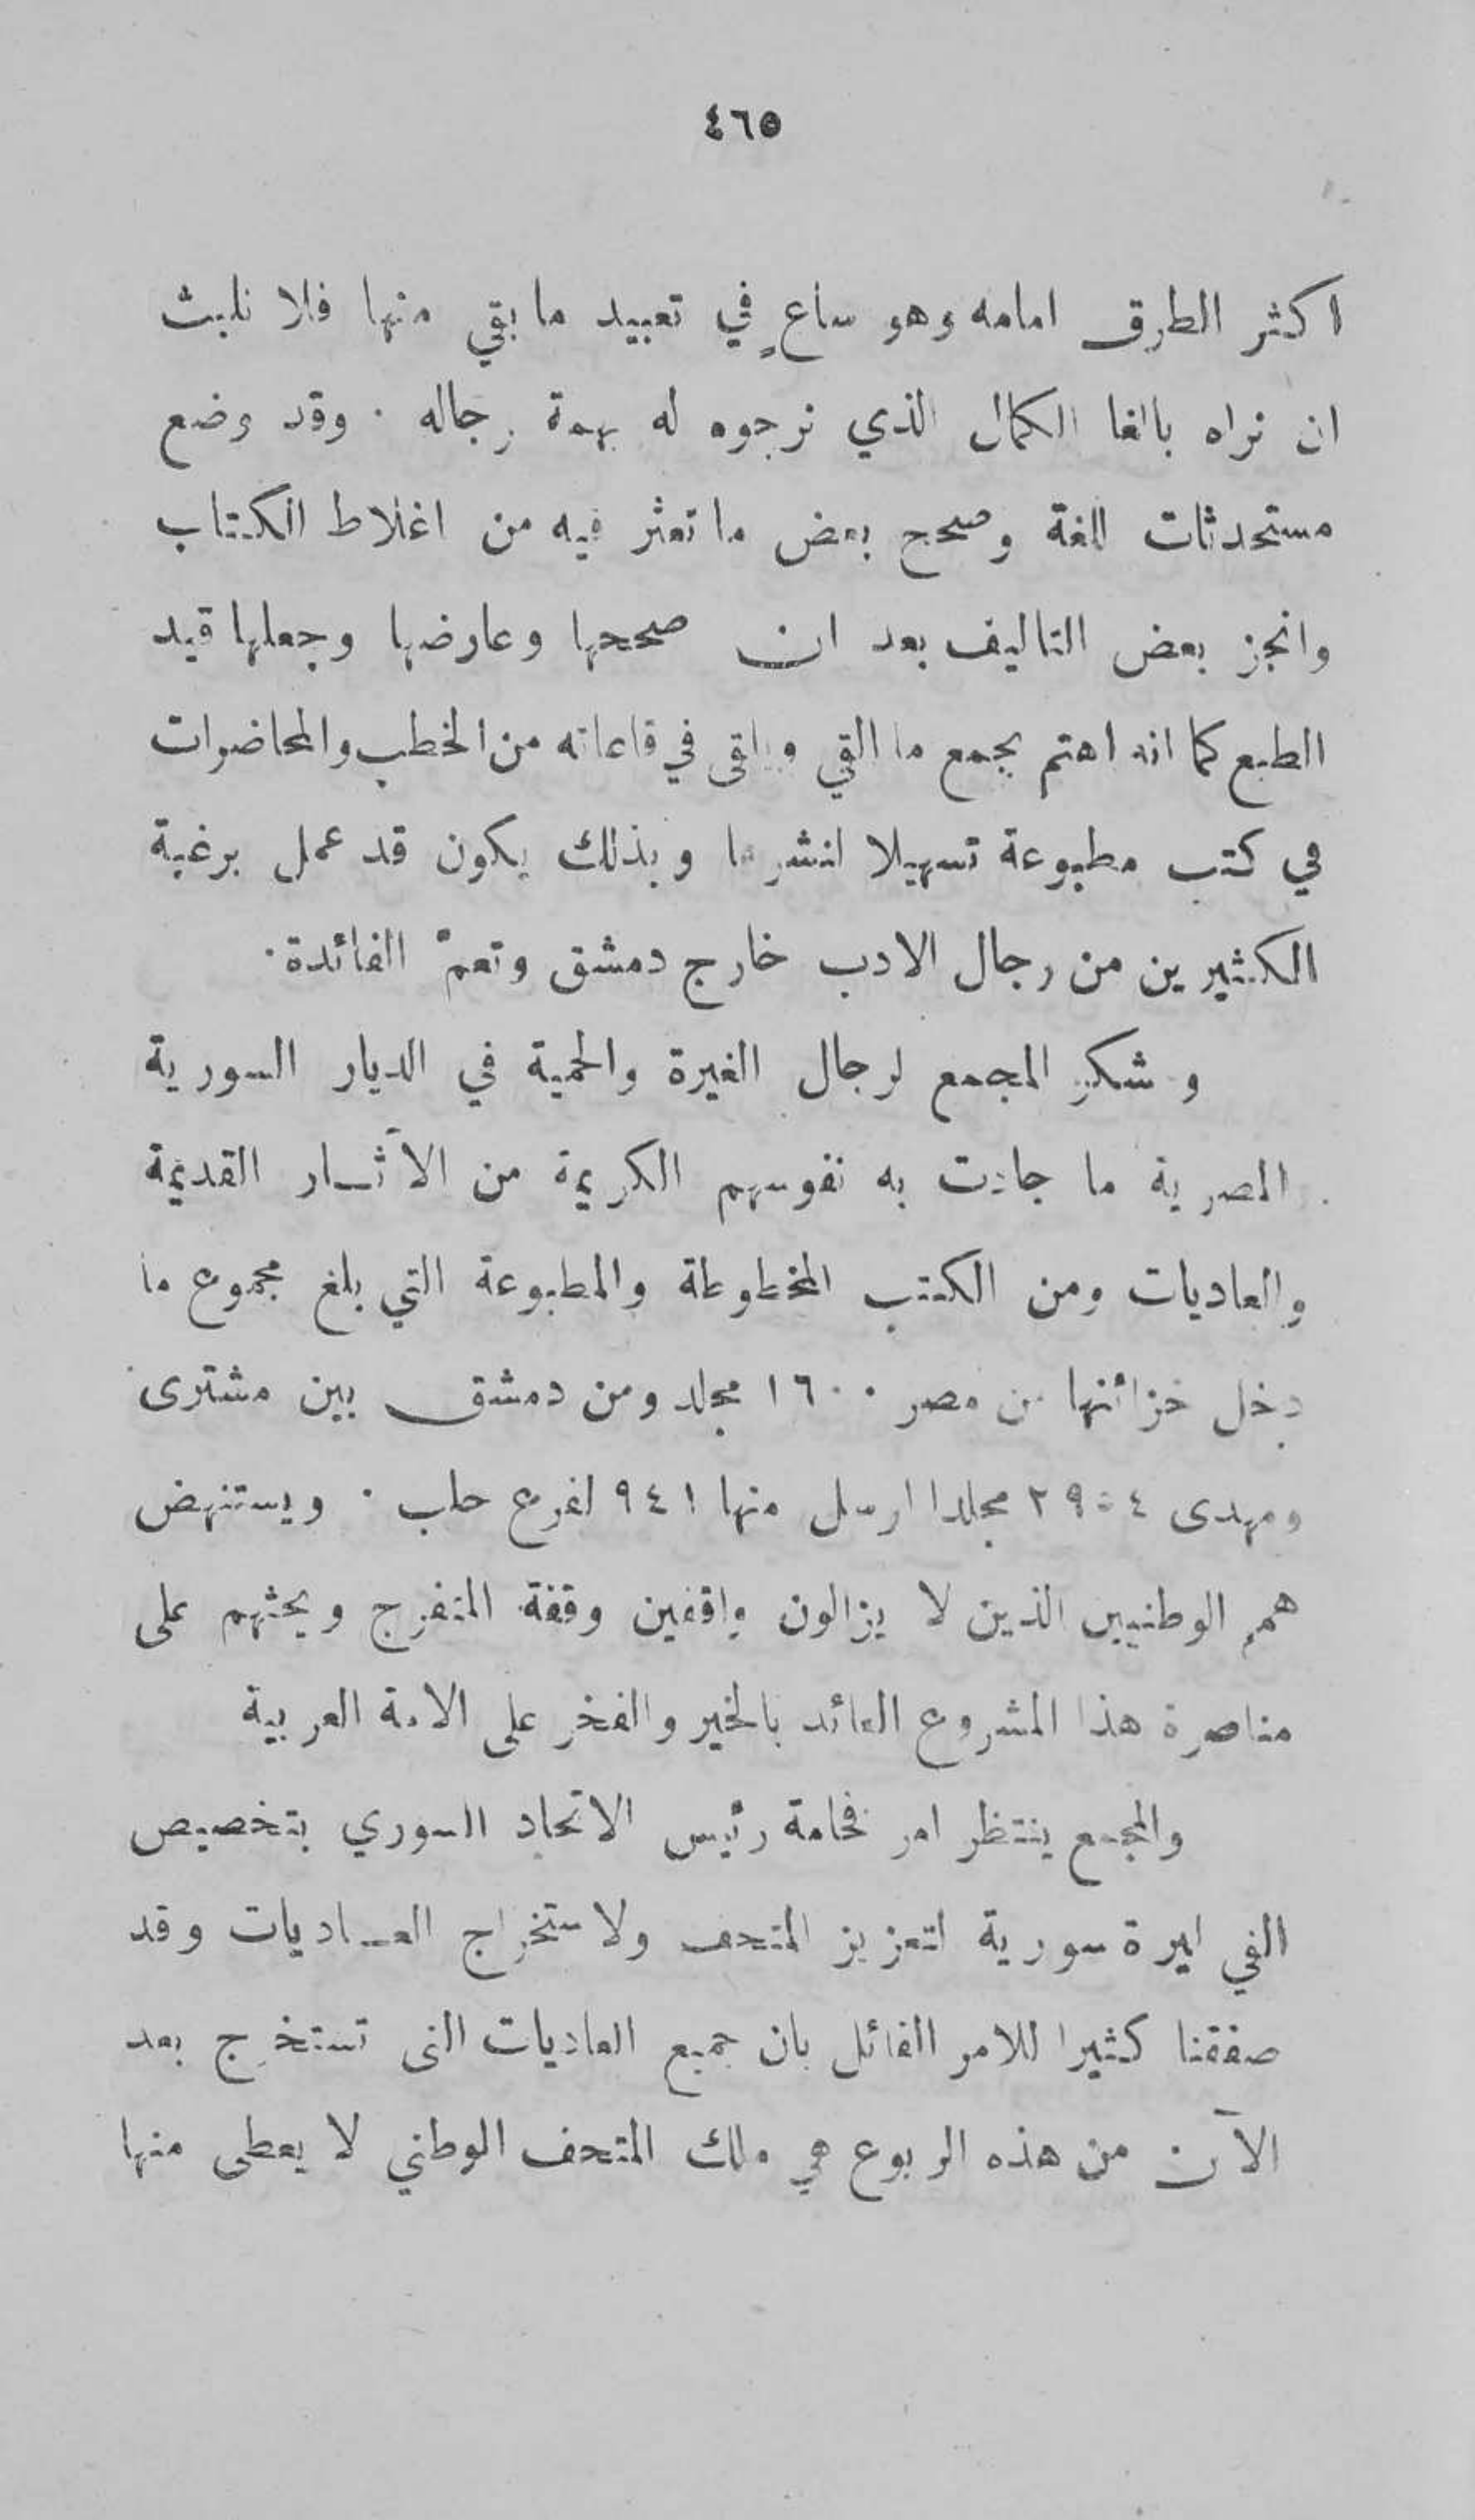 ٤٦٥
اكثر الطرق امامه وهو ساعٍ في تعبيد ما بقي منها فلا نلبث
ان نراه بالغا الكمال الذي نرجوه له بهمة رجاله . وقد وضع
مستحدثات للغة وصحح بعض ما تعثر فيه من اغلاط الكتاب
وانجز بعض التاليف بعد ان صححها وعارضها وجعلها قيد
الطبع كما انه اهتم بجمع ما القي ويلقى في قاعاته من الخطب والمحاضرات
في كتب مطبوعة تسهيلا لنشرها وبذلك يكون قد عمل برغبة
الكثيرين من رجال الادب خارج دمشق وتعمّ الفائدة .
وشكر المجمع لرجال الغيرة والحمية في الديار السورية
المصرية ما جادت به نفوسهم الكريمة من الآثار القديمة
والعاديات ومن الكتب المخطوطة والمطبوعة التي بلغ مجموع ما
دخل خزائنها من مصر ١٦٠٠ مجلد ومن دمشق بين مشترى
ومهدى مجلدا ارسل منها ٩٤١ لفرع حلب . ويستنهض
همم الوطنيين الذين لا يزالون واقفين وقفة المتفرج ويحثهم على
مناصرة هذا المشروع العائد بالخير والفخر على الامة العربية
والمجمع ينتظر امر فخامة رئيس الاتحاد السوري بتخصيص
الفي ليرة سورية لتعزيز المتحف ولاستخراج العاديات وقد
صفقنا كثيرا للامر القائل بان جميع العاديات التي تستخرج بعد
الآن من هذه الربوع هي ملك المتحف الوطني لا يعطى منها